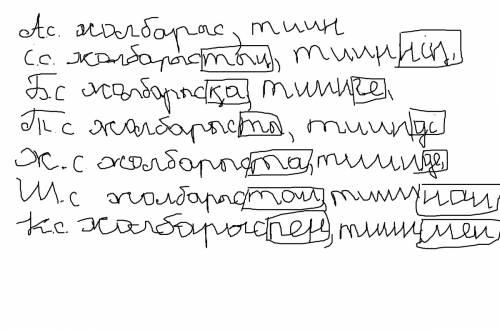 Ас. жолбарыс, тиин
Іс. жолбарыстың, тииннің,
Б.с жолбарысқа, тиинге,
Т.с жолбарысты, тиинді
Ж.с жолбарыста, тиинде,
Ш.с жолбарыстан, тииннан,
К.с. жолбарыспен, тиинмен